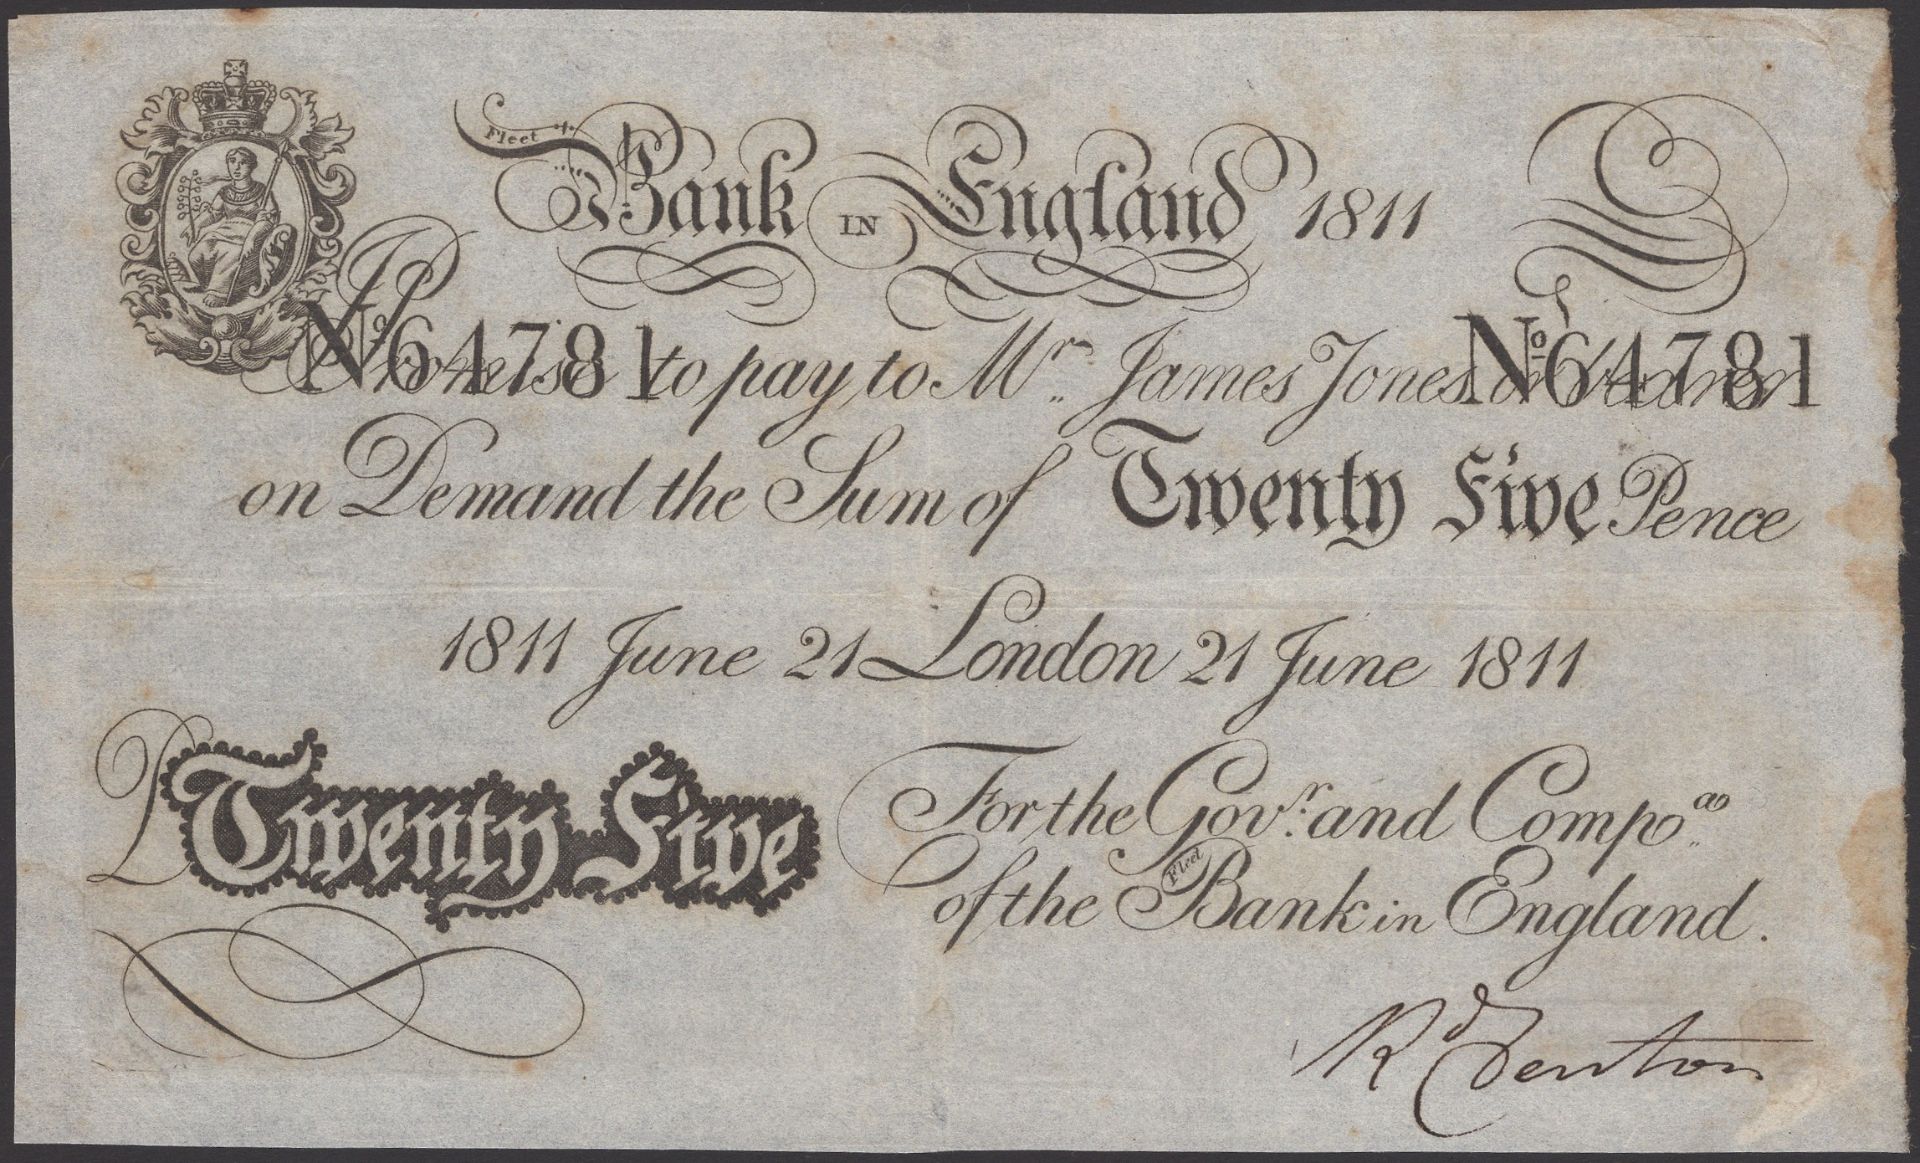 Fleet
Bank IN England 1811
I Promise to pay to Mr. James Jones or Bearer
No 64781 No 64781
on Demand the Sum of Twenty Five Pence
1811 June 21 London 21 June 1811
Twenty Five
For the Govr. and Compa.
of the Fleet Bank in England.
Rd Fenton